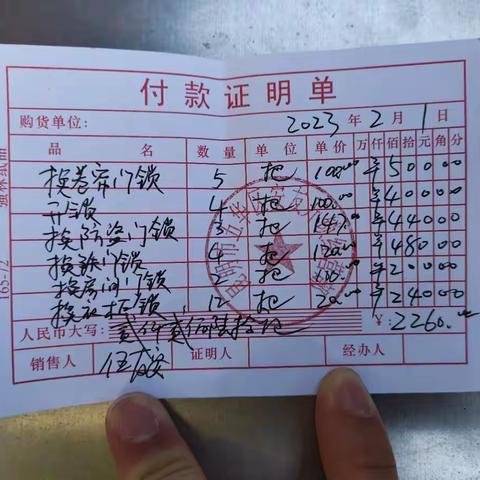 付款证明单
购货单位: 2023年2月1日
品名 数量 单位 单价 万仟佰拾元角分
换卷帘门锁 5 把 100.00 ¥50000
开锁 4 把 100.00 ¥40000
换防盗门锁 3 把 ¥44000
换铁门锁 4 把 120.00 ¥48000
换房间门锁 2 把 ¥20000
换柜锁 12 把 20.00 ¥24000
人民币大写: 贰仟贰佰陆拾元 ¥:2260.00
销售人 证明人 经办人
165-72
昆明市五华区